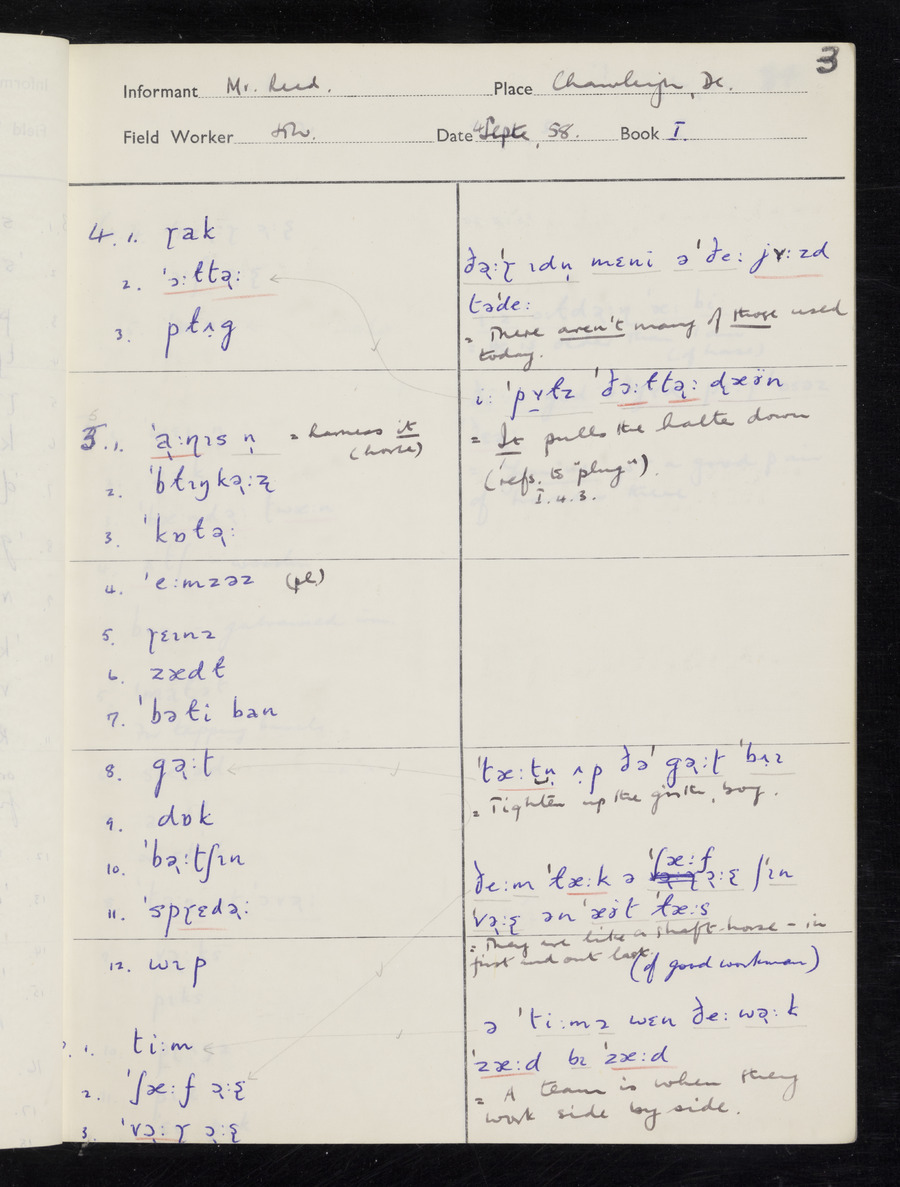 3
Informant Mr. Reed. Place Chawleigh, De.
Field Worker Date 4 Septe, 58. Book I.
4. 1. ɽak
2. ˈɔ:ltəʴ:
3. plʌg
ðəʴ:ˈɽ ɪdn̩ mɛni əˈðe: jʏ:zd
təde:
= There aren't many of those used
today.
i: ˈpʏlz ˈðɔ:ltəʴ: dæʊn
= It pulls the halter down
(refs. to "plug")
I.4.3.
5. 1. ˈɑ:ɳɪs n̩ = harness it
(horse)
2. ˈblɪŋkəʴ:ʐ
3. ˈkɒləʴ:
4. ˈe:mzəz (pl)
5. ɽɛɪnz
6. zædl
7. ˈbəli ban
8. gəʴ:t
9. dɒk
10. ˈbəʴ:tʃɪn
11. ˈspɽɛdəʴ:
12. wɪp
ˈtæ:tn̩ ʌp ðəˈ gəʴ:t ˈbʌɪ
= Tighten up the girth, boy.
ðe:m ˈlæ:k ə ˈʃæ:f ɔ:ʂ ʃɪn
ˈvəʴ:ʂ ən ˈæʊt ˈlæ:s
= They are like a shaft-horse - in
first and out last.
(of good workman)
1. ti:m
2. ˈʃæ:f ɔ:ʂ
3. ˈvɔ:ɽ ɔ:ʂ
ə ˈti:mz wɛn ðe: wəʴ:k
ˈzæ:d bɪ ˈzæ:d
= A team is when they
work side by side.